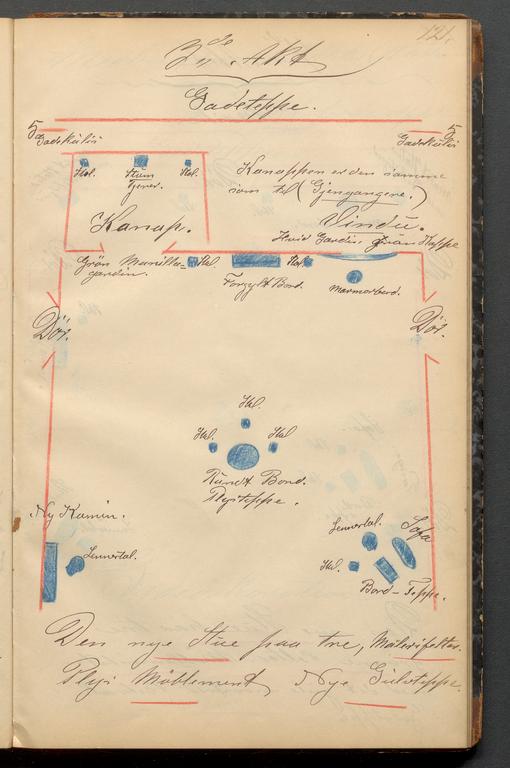 121.
3die Akt
Gadeteppe.
5 5
Gadekulis Gadekulis
Stol. Stum Stol.
tjener.
Kanapeen er den samme
som til (Gjengangere.)
Kanap.
Vindu.
Hvid Gardin Grön Kappe
Grön Manilla- Stol. Stol.
gardin. Forgylt Bord. Marmorbord.
Dör. Dör.
Stol.
Stol. Stol
Rundt Bord.
Plysteppe.
Ny Kamin.
Lennestol. Lennestol. Sofa
Stol.
Bord-Teppe.
Den nye Stue paa tre,
Plys Möblement, Nye Gulvteppe.